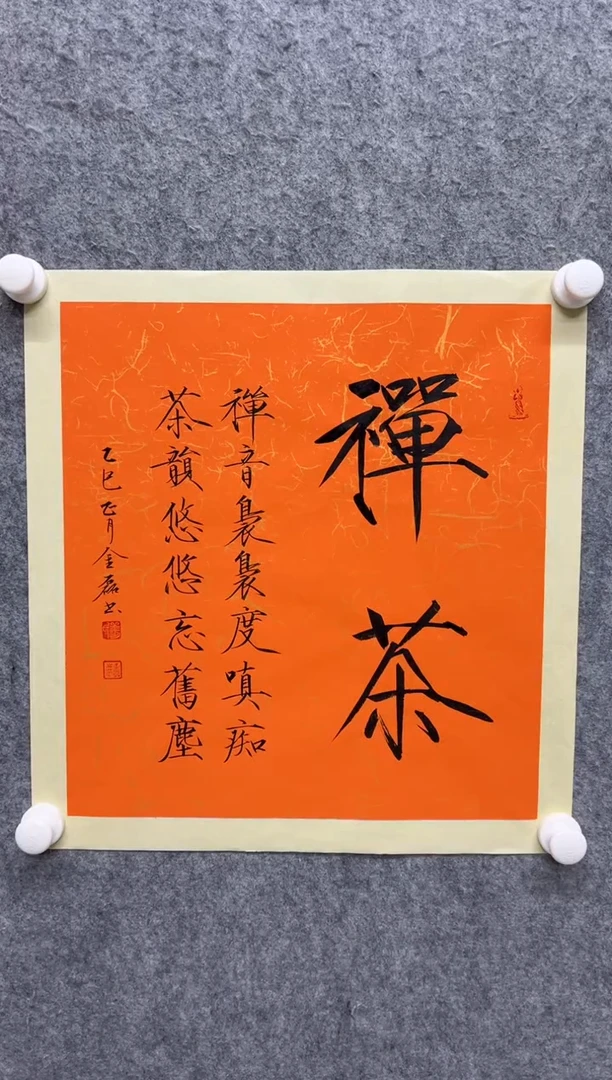 禪茶
禪音裊裊度嗔痴
茶韻悠悠忘舊塵
乙巳正月金磊书